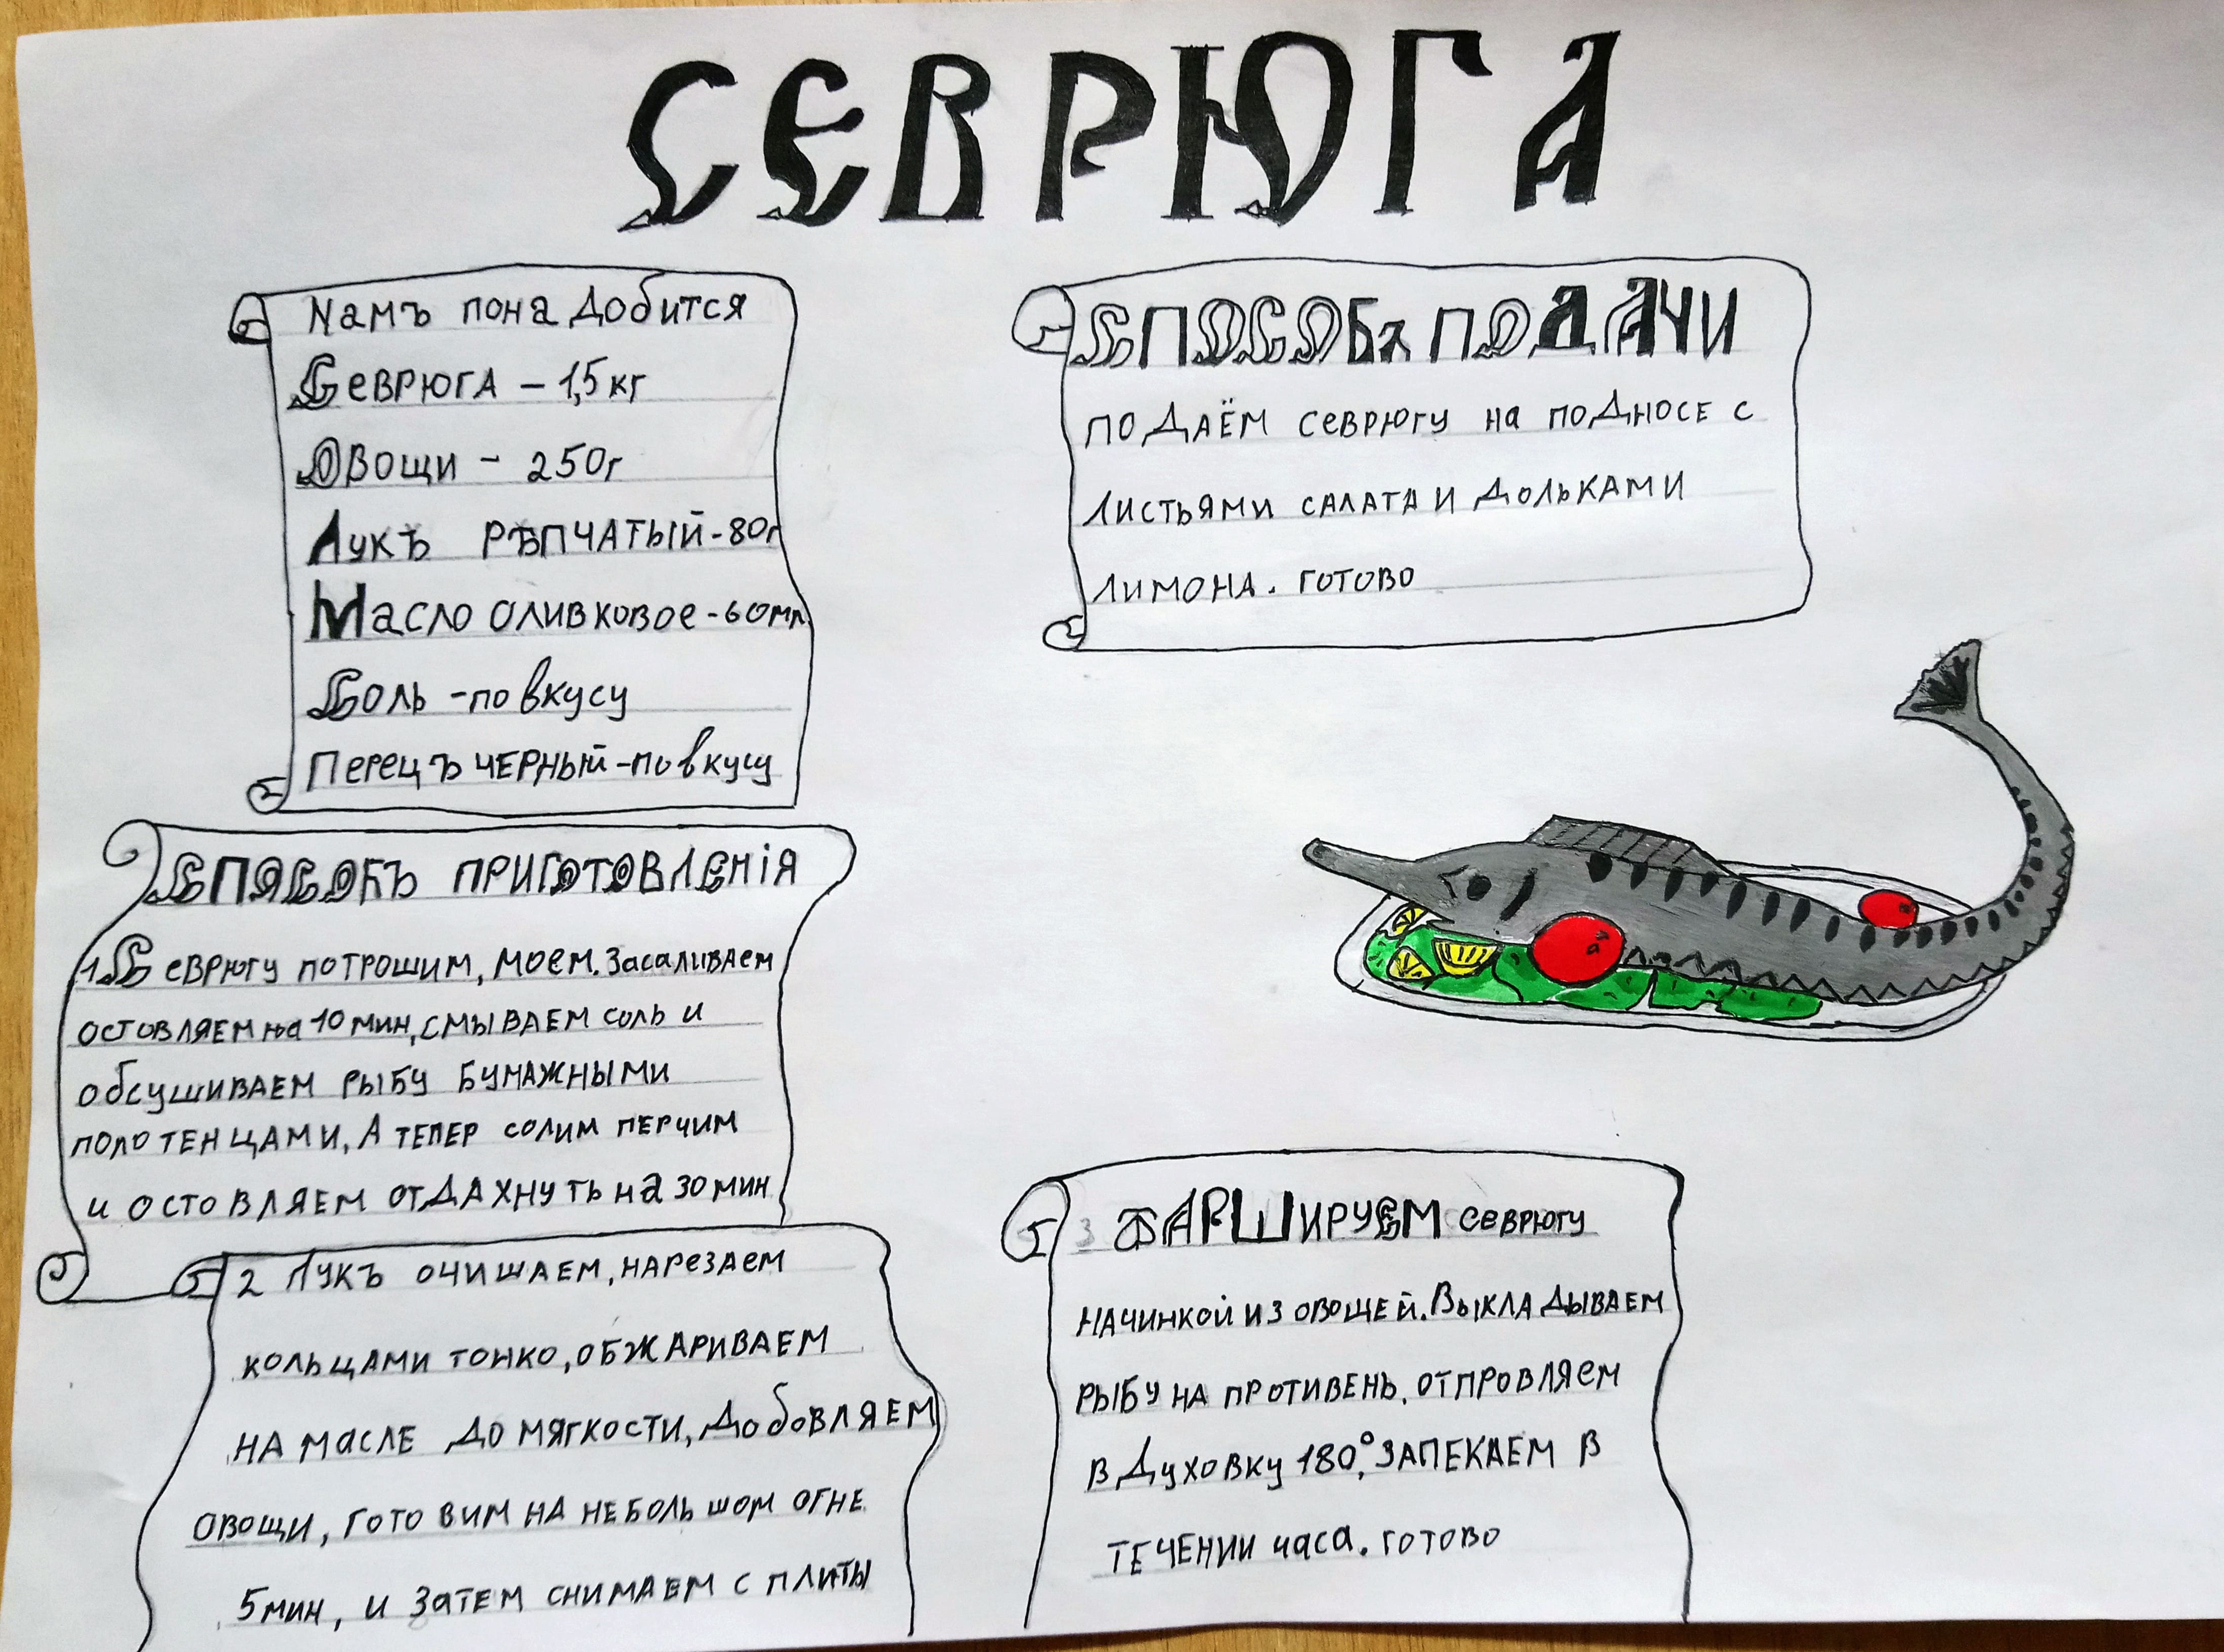 СЕВРЮГА
Nамъ понадобится
Севрюга – 1,5 кг
Овощи – 250г
Лукъ рѣпчатый-80г
Масло оливковое-60мл
Соль -по вкусу
Перецъ черный-по вкусу
Спасобъ приготовленiя
1 Севрюгу потрошим, моем. Засаливаем
остовляем на 10 мин, смываем соль и
обсушиваем рыбу бумажными
полотенцами, А тепер солим перчим
и остовляем отдахнуть на 30 мин
2 Лукъ очишаем, нарезаем
кольцами тонко, обжариваем
на масле до мягкости, добовляем
овощи, готовим на небольшом огне
5мин, и затем снимаем с плиты
3 Ѳаршируем севрюгу
начинкой из овощей. Выкладываем
рыбу на противень. отпровляем
в духовку 180°, запекаем в
течении часа. готово
Способъ подачи
подаём севрюгу на подносе с
листьями салата и дольками
лимона. готово